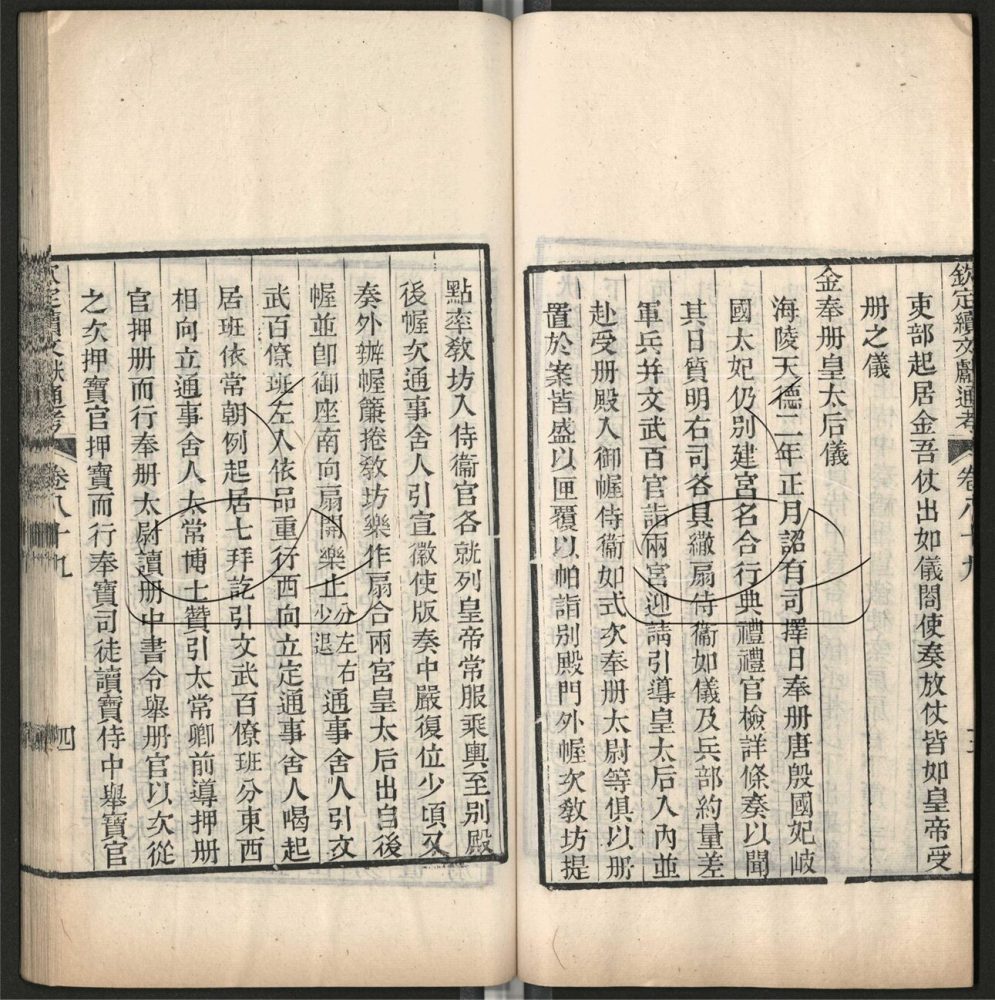 欽定續文獻通考 卷八十九
吏部起居金吾仗出如儀閤使奏放仗皆如皇帝受
册之儀
金奉册皇太后儀
海陵天德二年正月詔有司擇日奉册唐殷國妃岐
國太妃仍别建宮名合行典禮禮官檢詳條奏以聞
其日質明右司各具繖扇侍衞如儀及兵部約量差
軍兵幷文武百官詣兩宮迎請引導皇太后入內並
赴受册殿入御幄侍衞如式次奉册太尉等俱以册
置於案皆盛以匣覆以帕詣别殿門外幄次敎坊提
點率敎坊入侍衞官各就列皇帝常服乘輿至别殿
後幄次通事舍人引宣徽使版奏中嚴復位少頃又
奏外辦幄簾捲敎坊樂作扇合兩宮皇太后出自後
幄並卽御座南向扇開樂止分左右少退通事舍人引文
武百僚班左入依品重行西向立定通事舍人喝起
居班依常朝例起居七拜訖引文武百僚班分東西
相向立通事舍人太常博士贊引太常卿前導押册
官押册而行奉册太尉讀册中書令舉册官以次從
之次押寶官押寶而行奉寶司徒讀寶侍中舉寶官
欽定續文獻通考 卷八十九 四